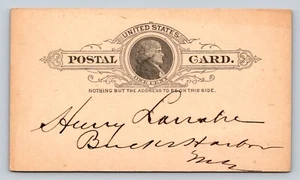 UNITED STATES
POSTAL CARD.
ONE CENT
NOTHING BUT THE ADDRESS TO BE ON THIS SIDE.
Henry Larrabee
Bucks Harbor
Me